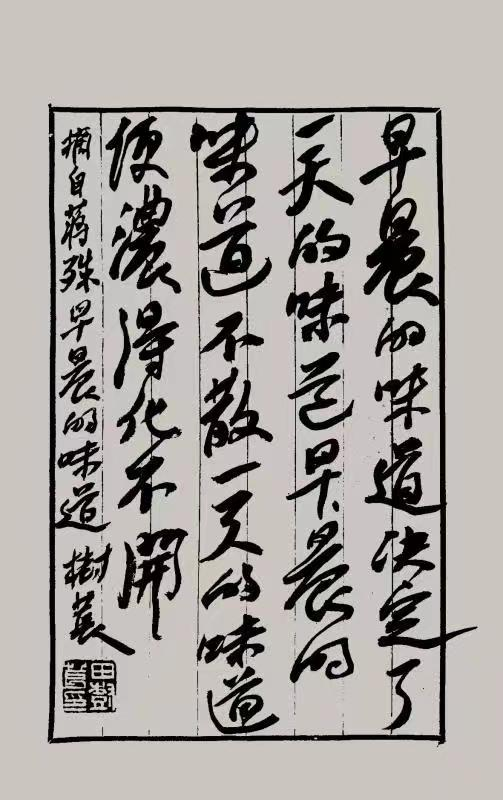 早晨的味道决定了
一天的味道早晨的
味道不散一天的味道
便濃得化不開
摘自蒋殊早晨的味道 樹萇
田樹萇印